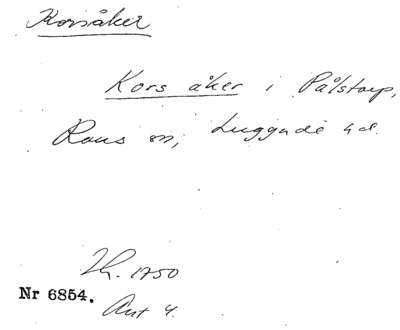 Korsåker
Kors åker i Pålstorp,
Raus sn, Luggude hd.
1750
Nr 6854.
Ant 4.